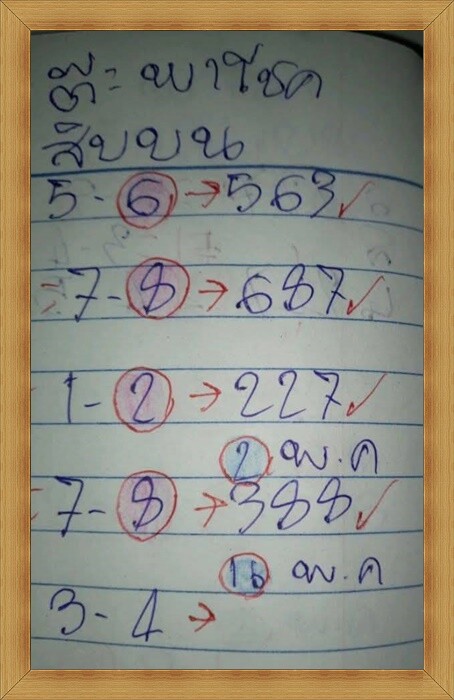 ตี๋ะ พาโชค
สิบบน
5-6 → 563 ✓
7-8 → 687 ✓
1-2 → 227 ✓
2 พ.ค
7-8 → 388 ✓
16 พ.ค
3-4 →